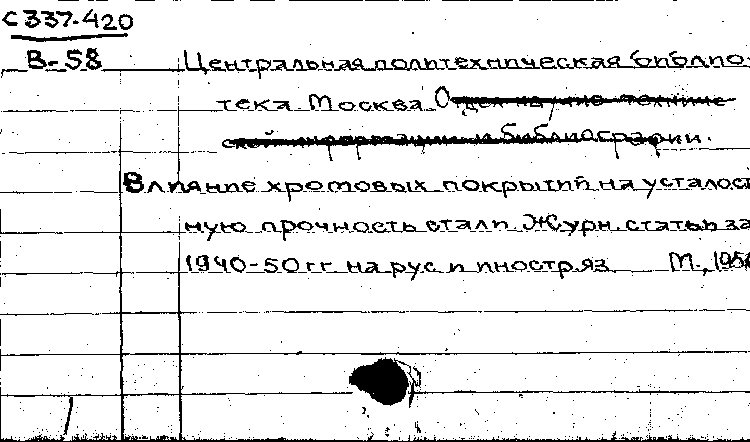 С337-420
В-58 Центральная политехническая библио-
тека Москва Отдел научно-техниче-
ской информации и библиографии.
Влияние хромовых покрытий на усталост
ную прочность стали. Журн. статьи за
1940-50 гг. на рус и иностр. яз. М.,